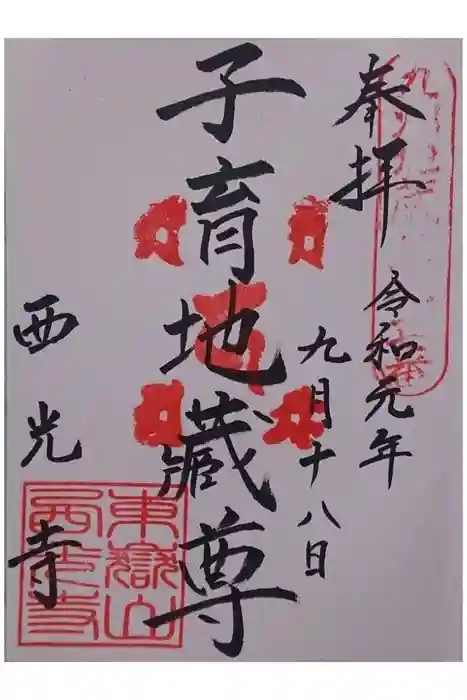 奉拝
令和元年
九月十八日
子育地蔵尊
西光寺
東嶽山
西光寺